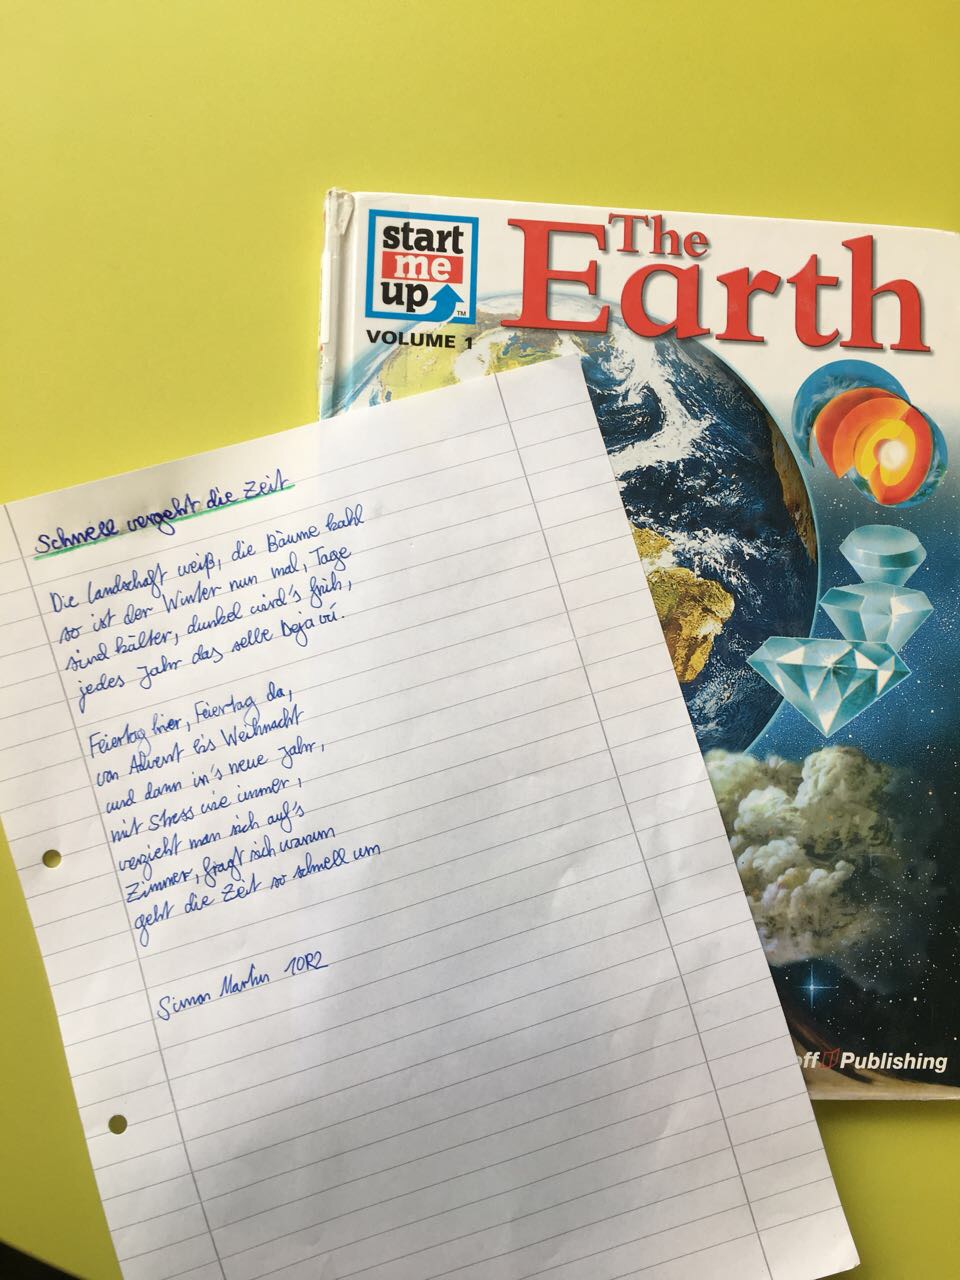 start
me
up
TM
VOLUME 1
The
Earth
Schnell vergeht die Zeit
Die Landschaft weiß, die Bäume kahl
so ist der Winter nun mal, Tage
sind kälter, dunkel wird's früh,
jedes Jahr das selbe Dejá vú.
Feiertag hier, Feiertag da,
von Advent bis Weihnacht
und dann in's neue Jahr,
mit Stress wie immer,
verzieht man sich auf's
Zimmer, fragt sich warum
geht die Zeit so schnell um
Simon Martin 10R2
Publishing